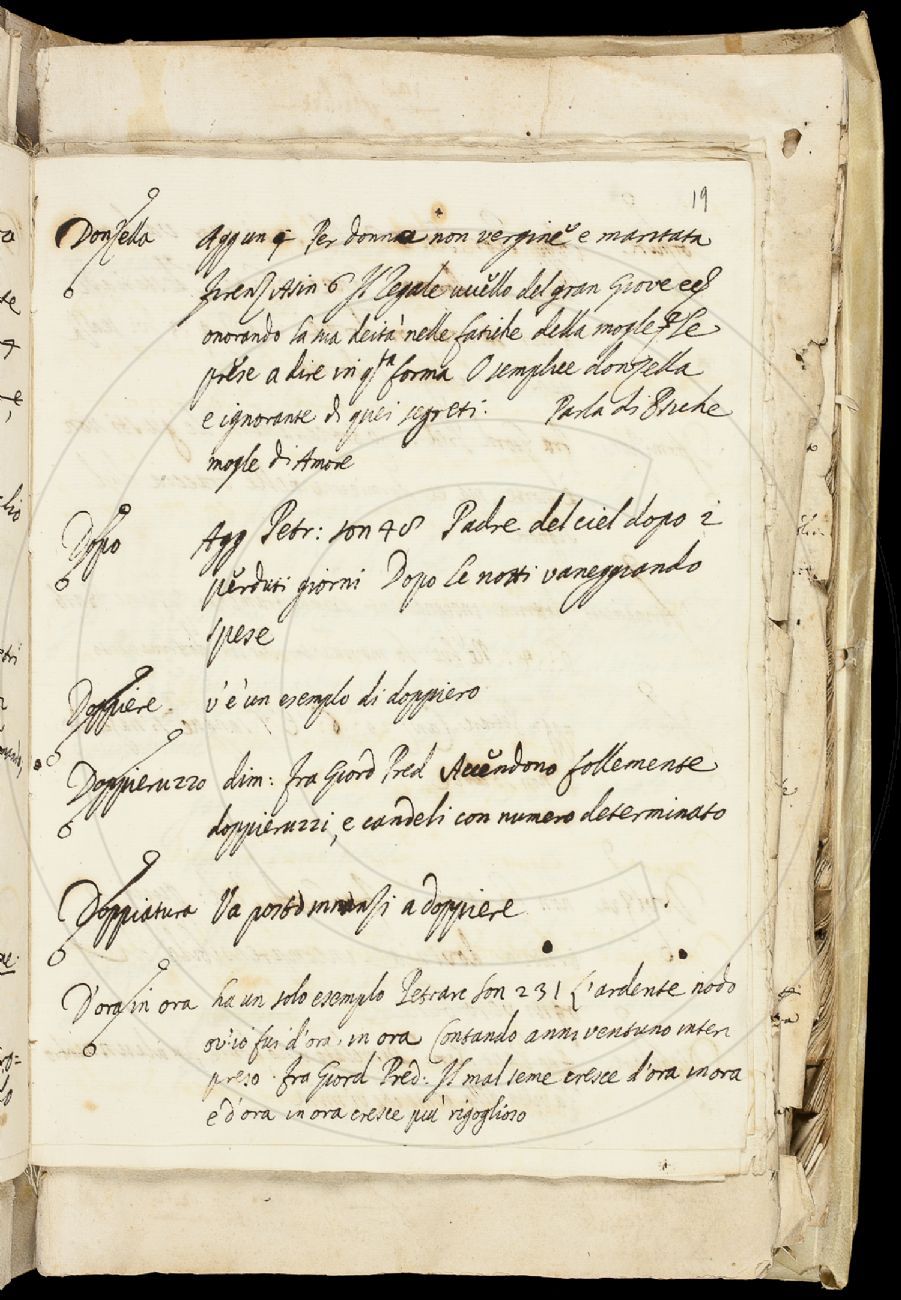 19
Donzella Aggiung Per donna non vergine e maritata
Firenz Asin 6 Il regale uccello del gran Giove ecc
onorando la sua deità nelle fatiche della mogle Le
prese a dire in qsta forma O semplice donzella
e ignorante di quei segreti. Parla di Psiche
mogle di Amore
Dopo Agg Petr: son 48 Padre del ciel dopo i
perduti giorni Dopo le notti vaneggiando
spese
Doppiere v'è un esemplo di doppiero
Doppieruzzo dim: fra Giord Pred Accendono follemente
doppieruzzi, e candeli con numero determinato
Doppiatura Va posto innanzi a doppiere
D'ora in ora ha un solo esemplo Petrarc son 231 L'ardente nodo
ov'io fui d'ora in ora Contando anni ventuno interi
preso. fra Giord Pred: Il mal seme cresce d'ora in ora
e d'ora in ora cresce più rigoglioso